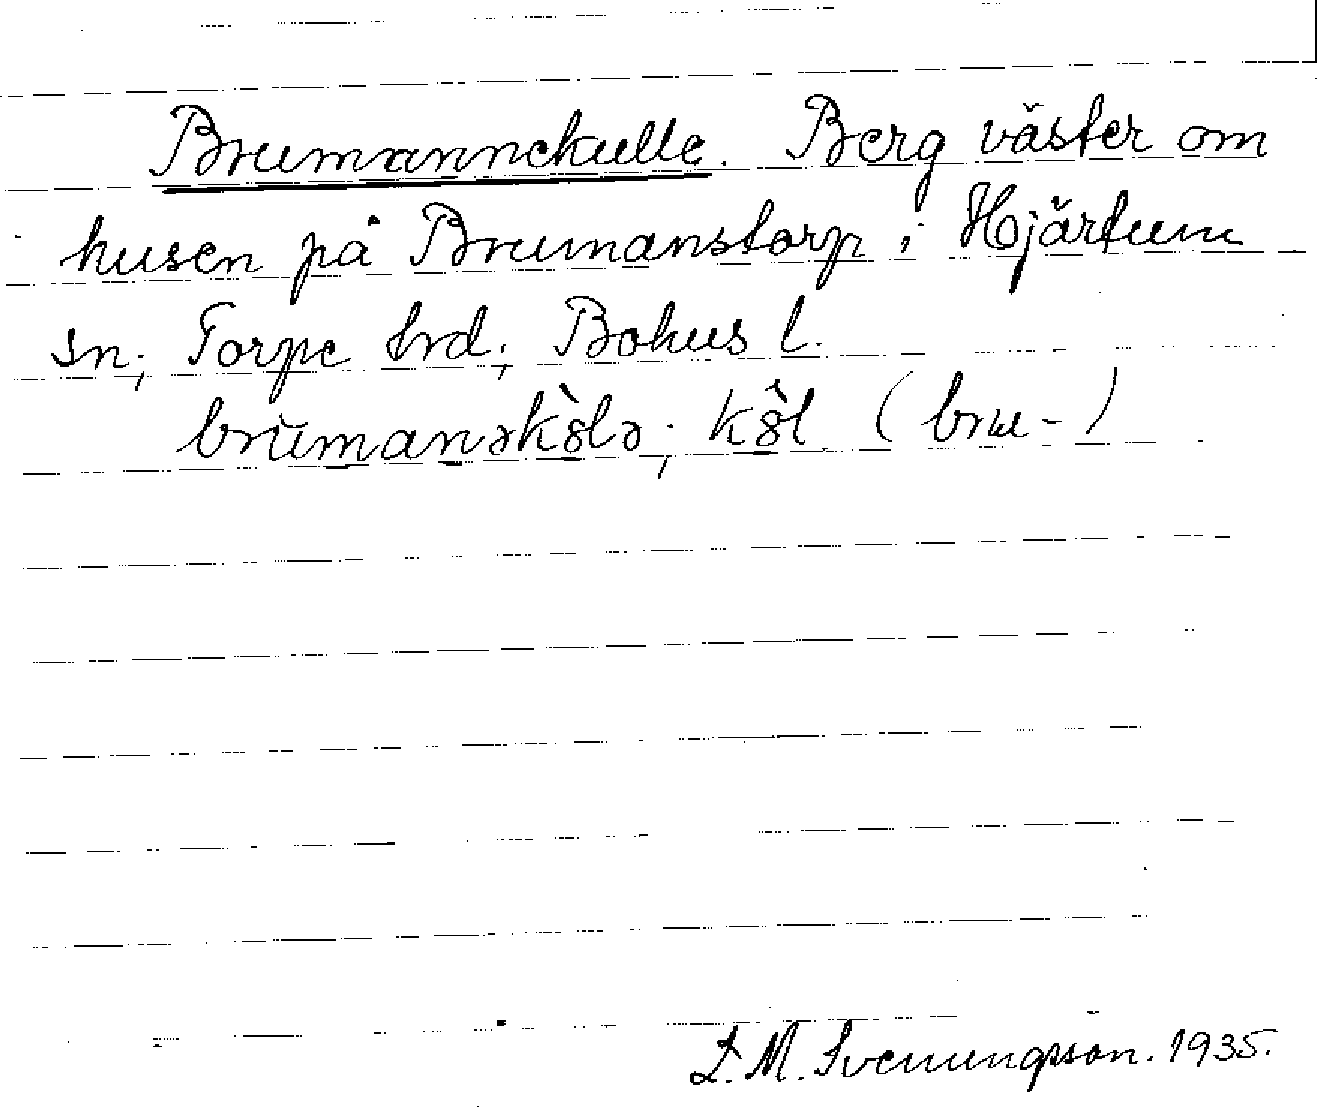 Brumannekulle. Berg väster om
husen på Brumanstorp i Hjärtum
sn; Torpe hrd; Bohus l.
brùmanəkòlə; kòl (bru-)
L. M. Svenungsson. 1935.